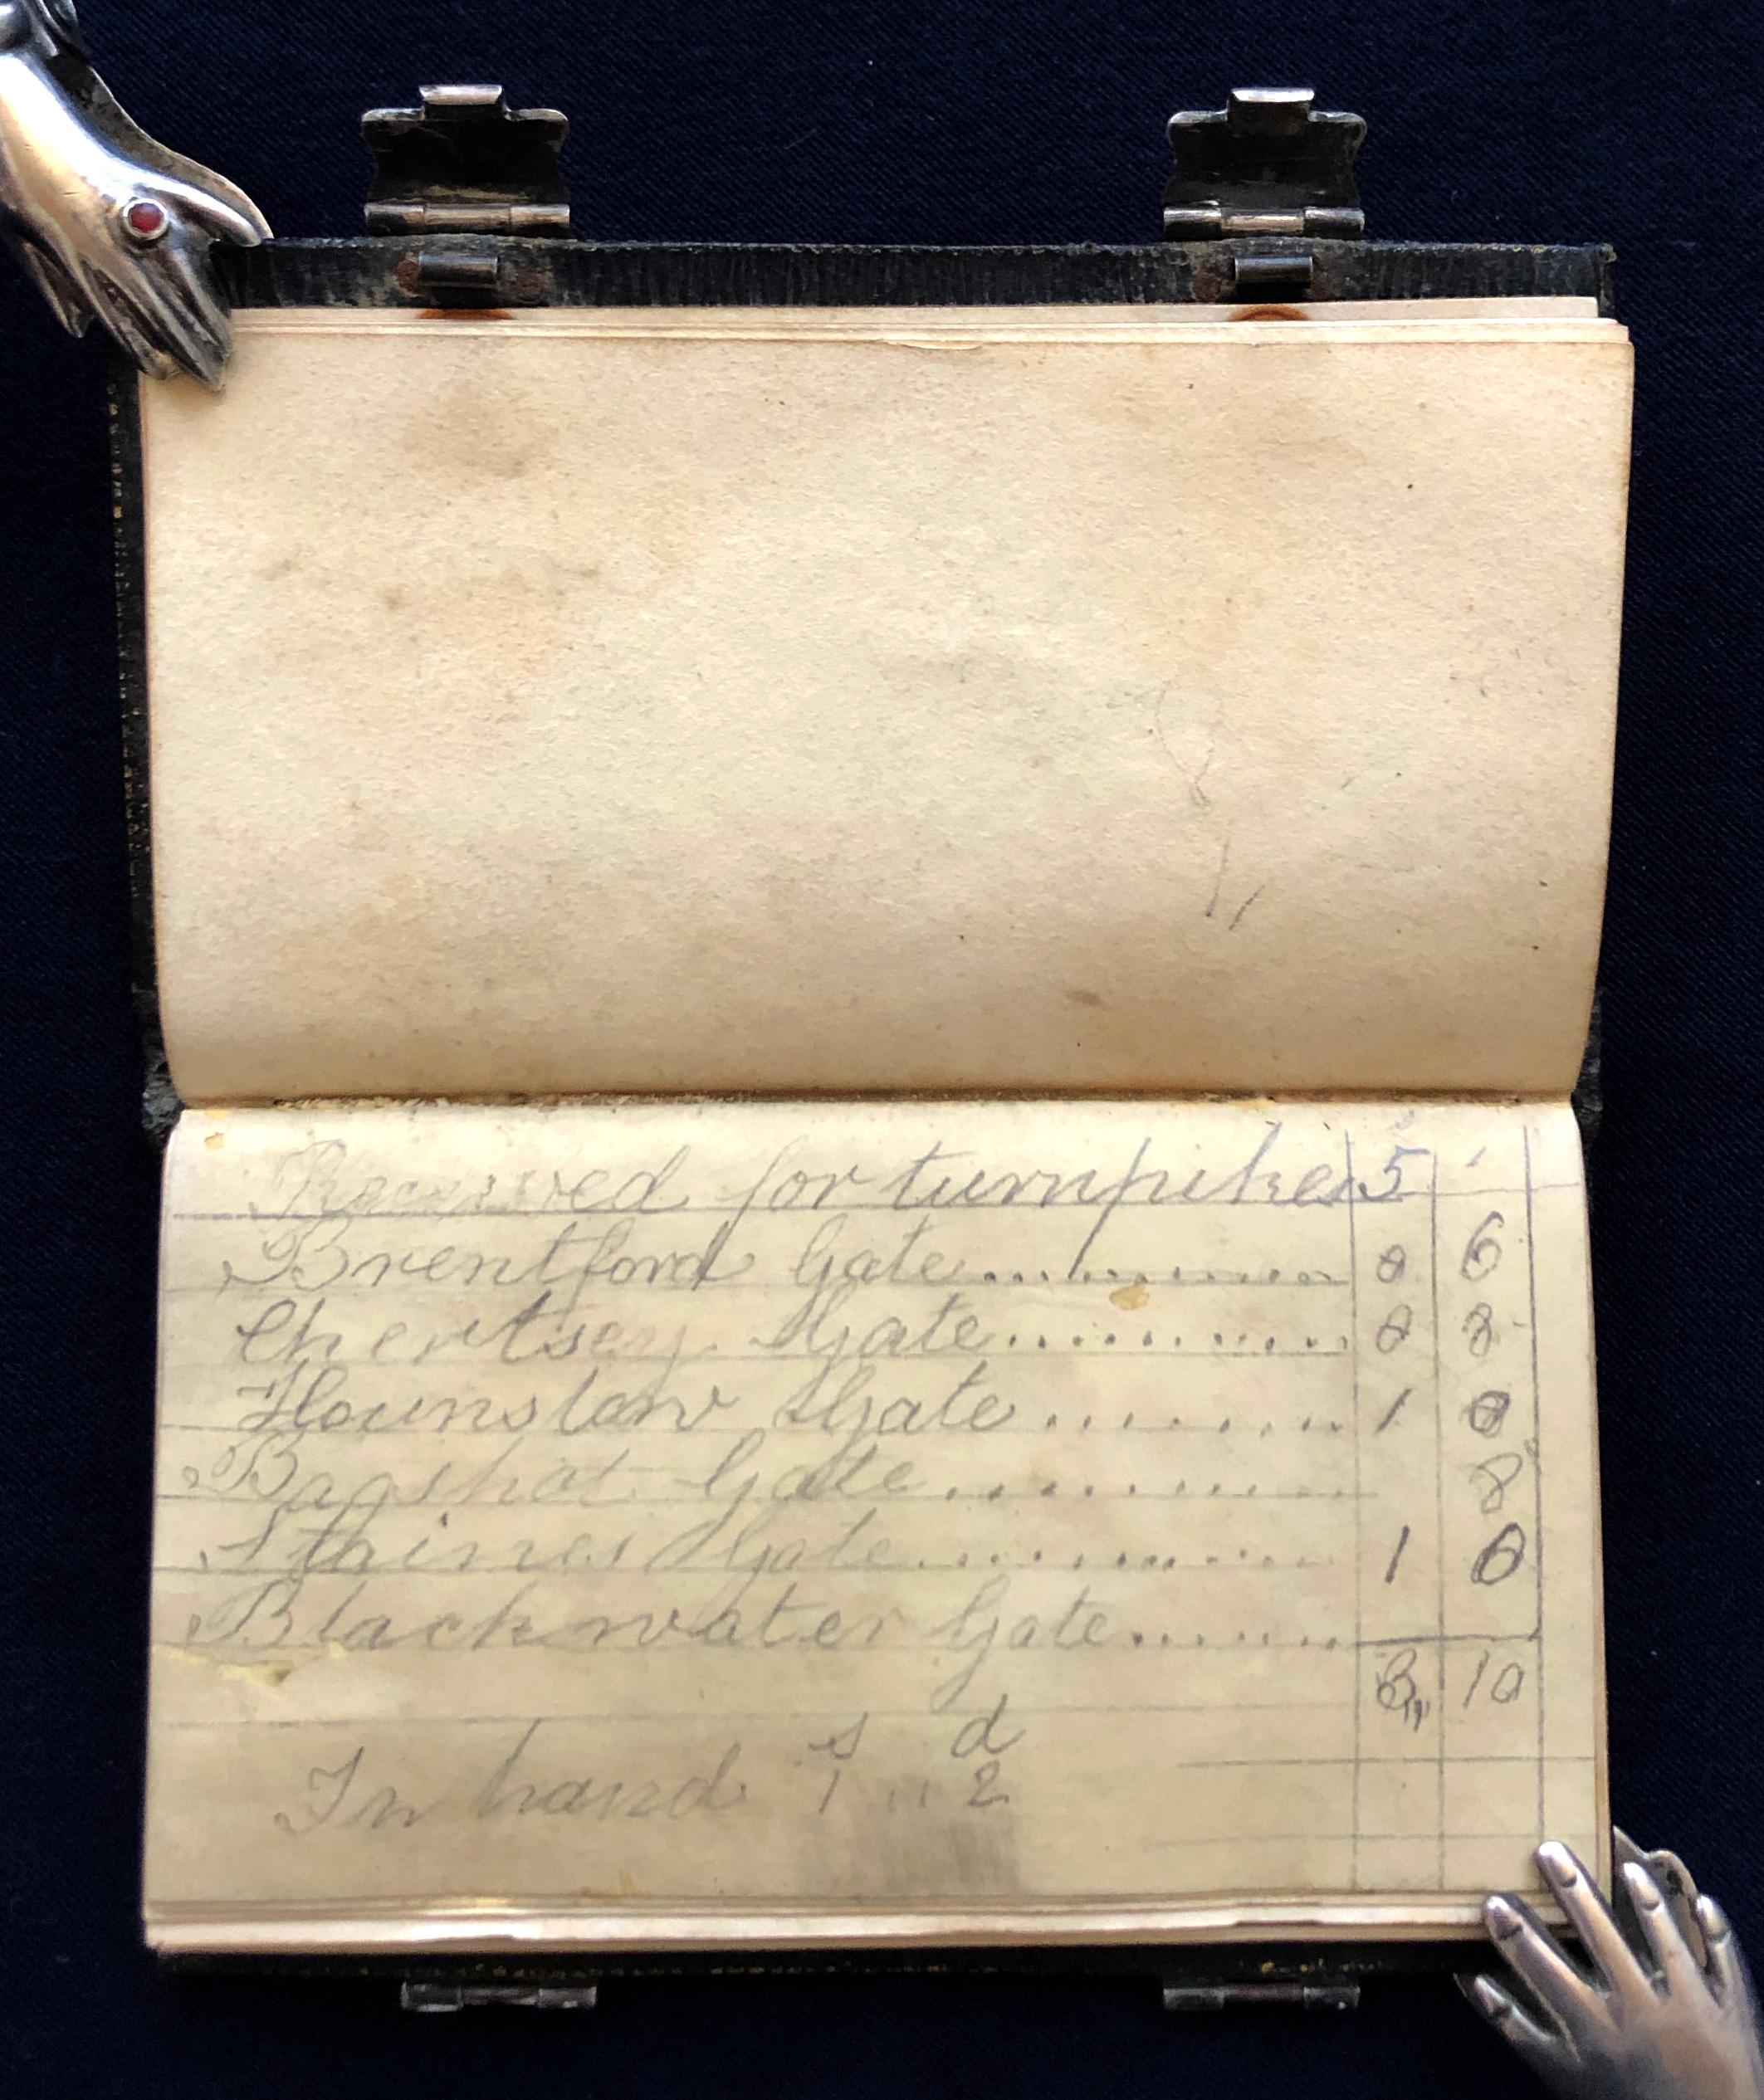 Received for turnpikes 5
Brentford Gate ............ 0 6
Chertsey Gate ............ 0 8
Hounslow Gate ......... 1 0
Bagshot Gate ............ 8
Sthines Gate ............ 1 0
Blackwater Gate .......
3 ,, 10
s d
In hand 1 ,, 2